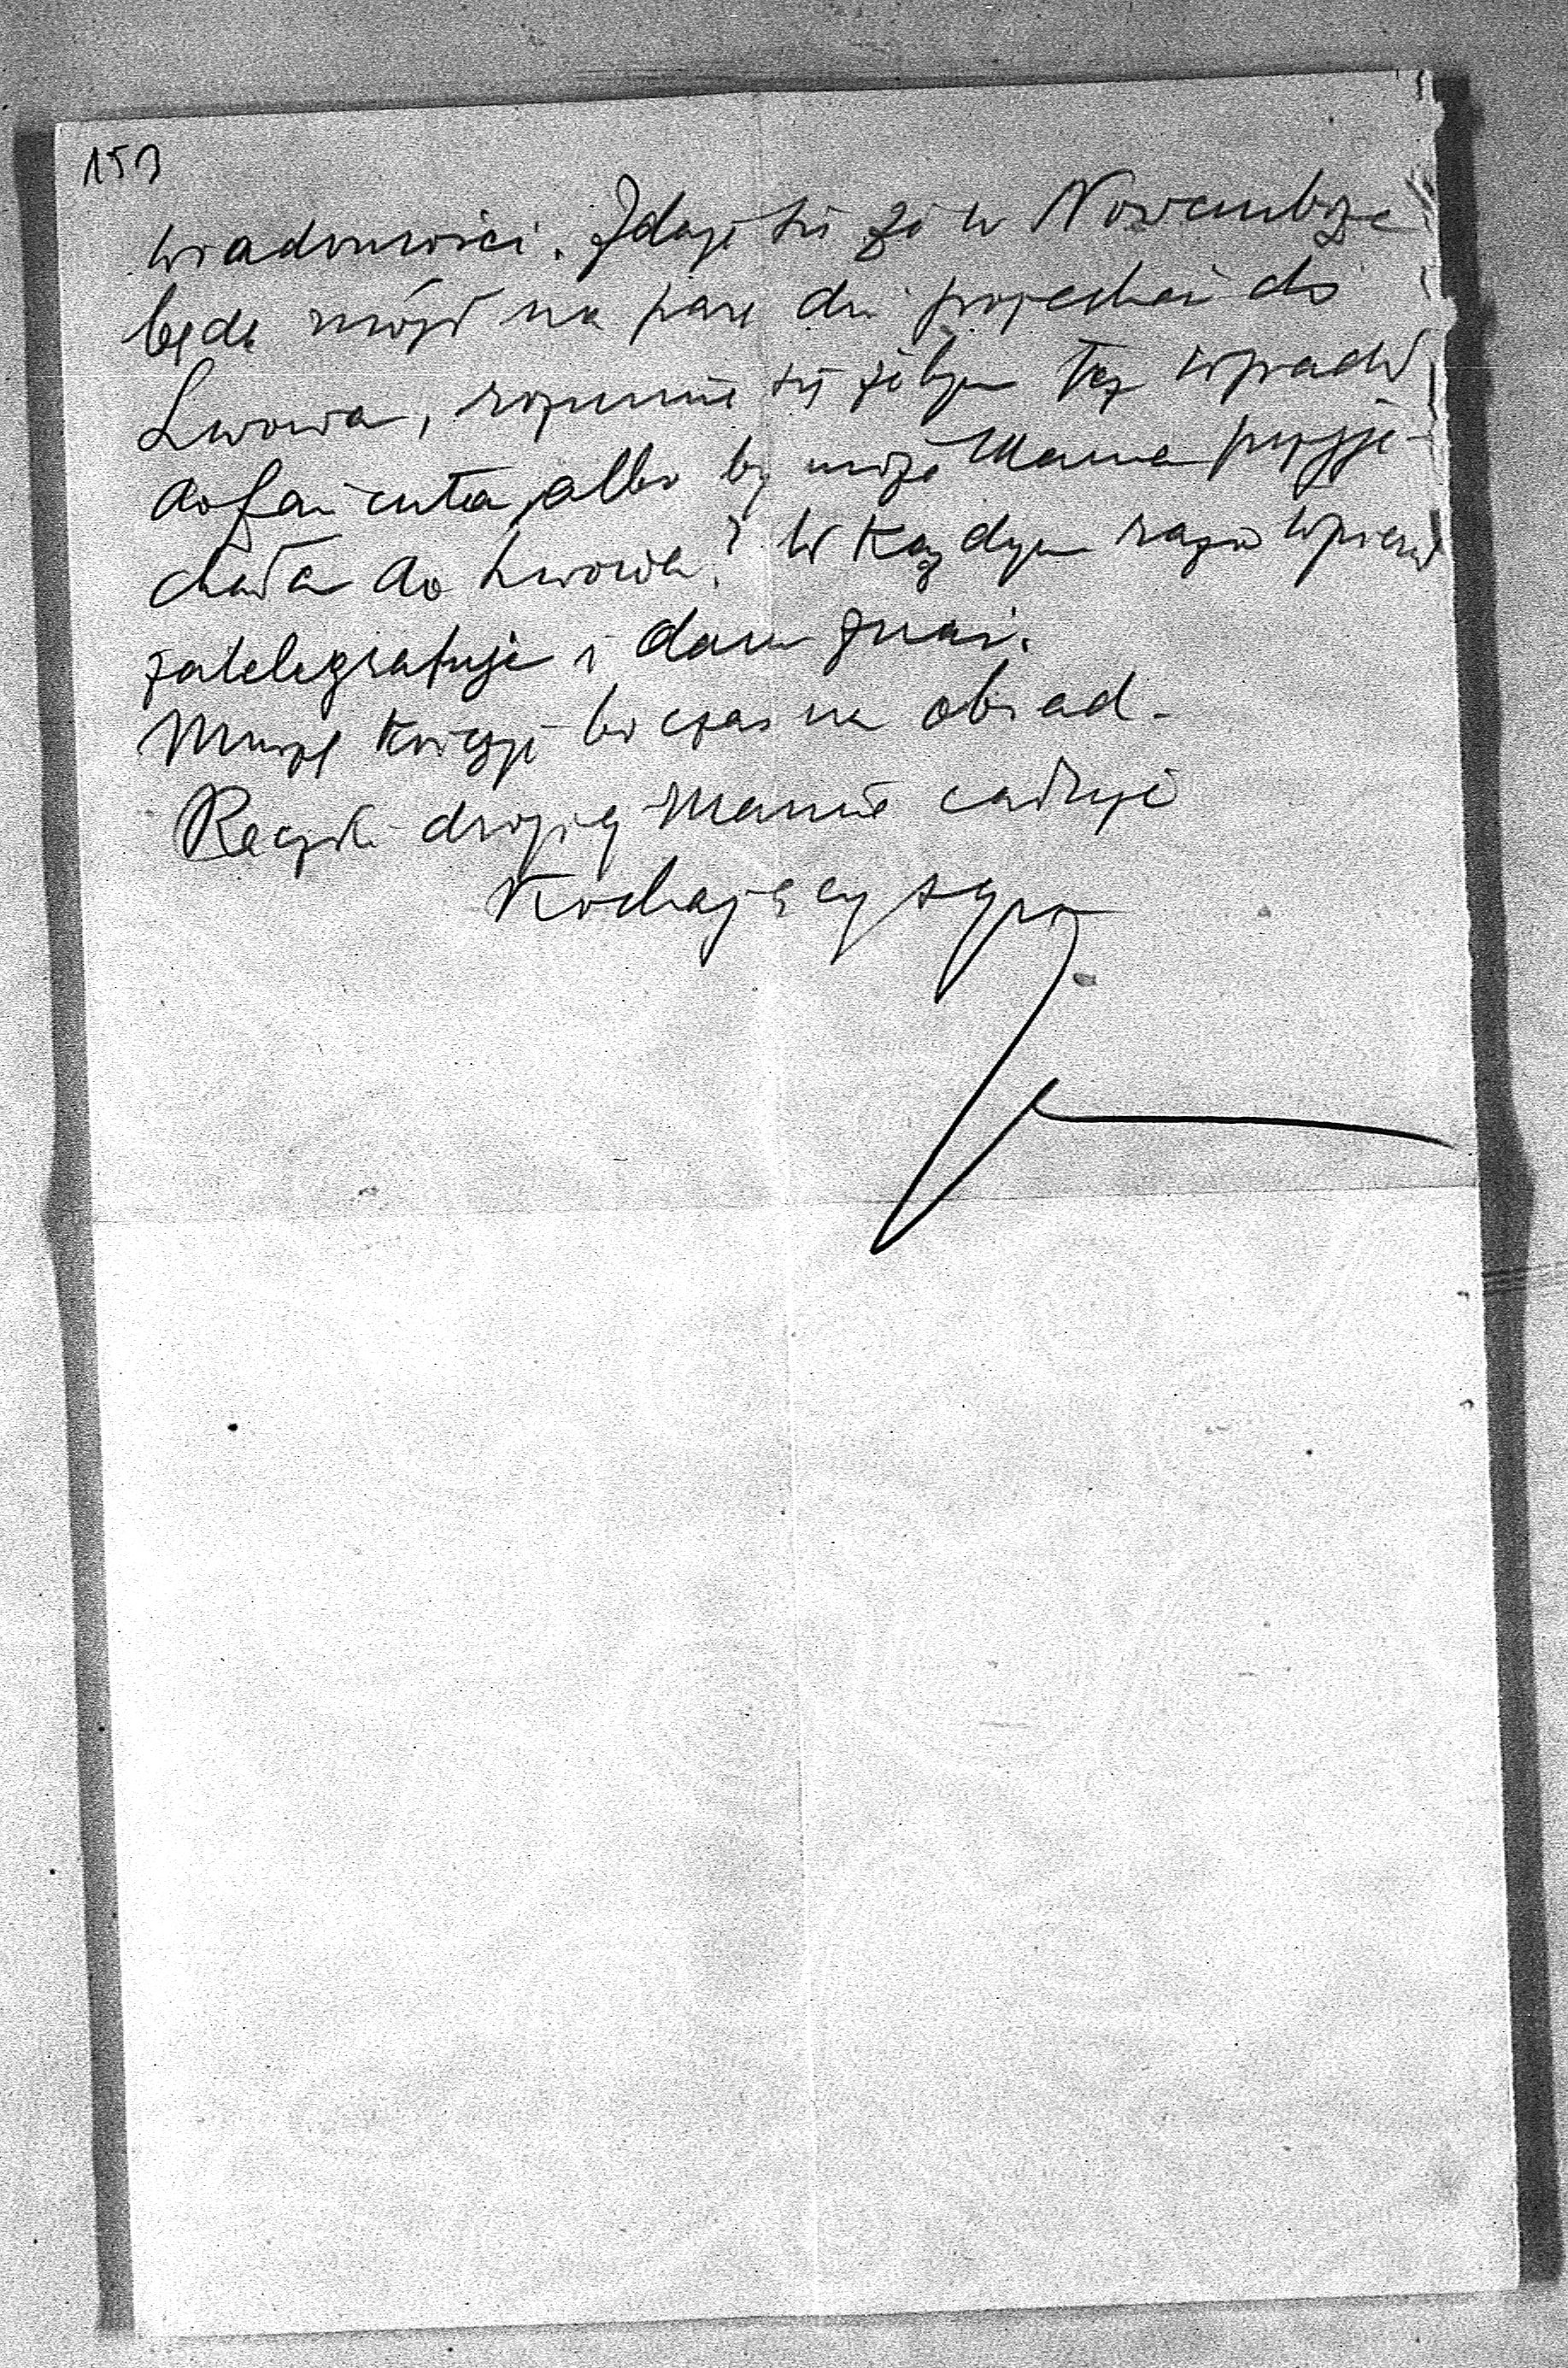 153
wiadomości. Zdaje się że w Novembrze
będę mógł na parę dni pojechać do
Lwowa, rozumie się żebym też wpadł
do Łańcuta, albo by może Mama przyje-
chała do Lwowa? W każdym razie wpierw
zatelegrafuję i dam znać.
Muszę kończyć bo czas na obiad.
Rączki drogiej Mamie całuję
Kochający syn